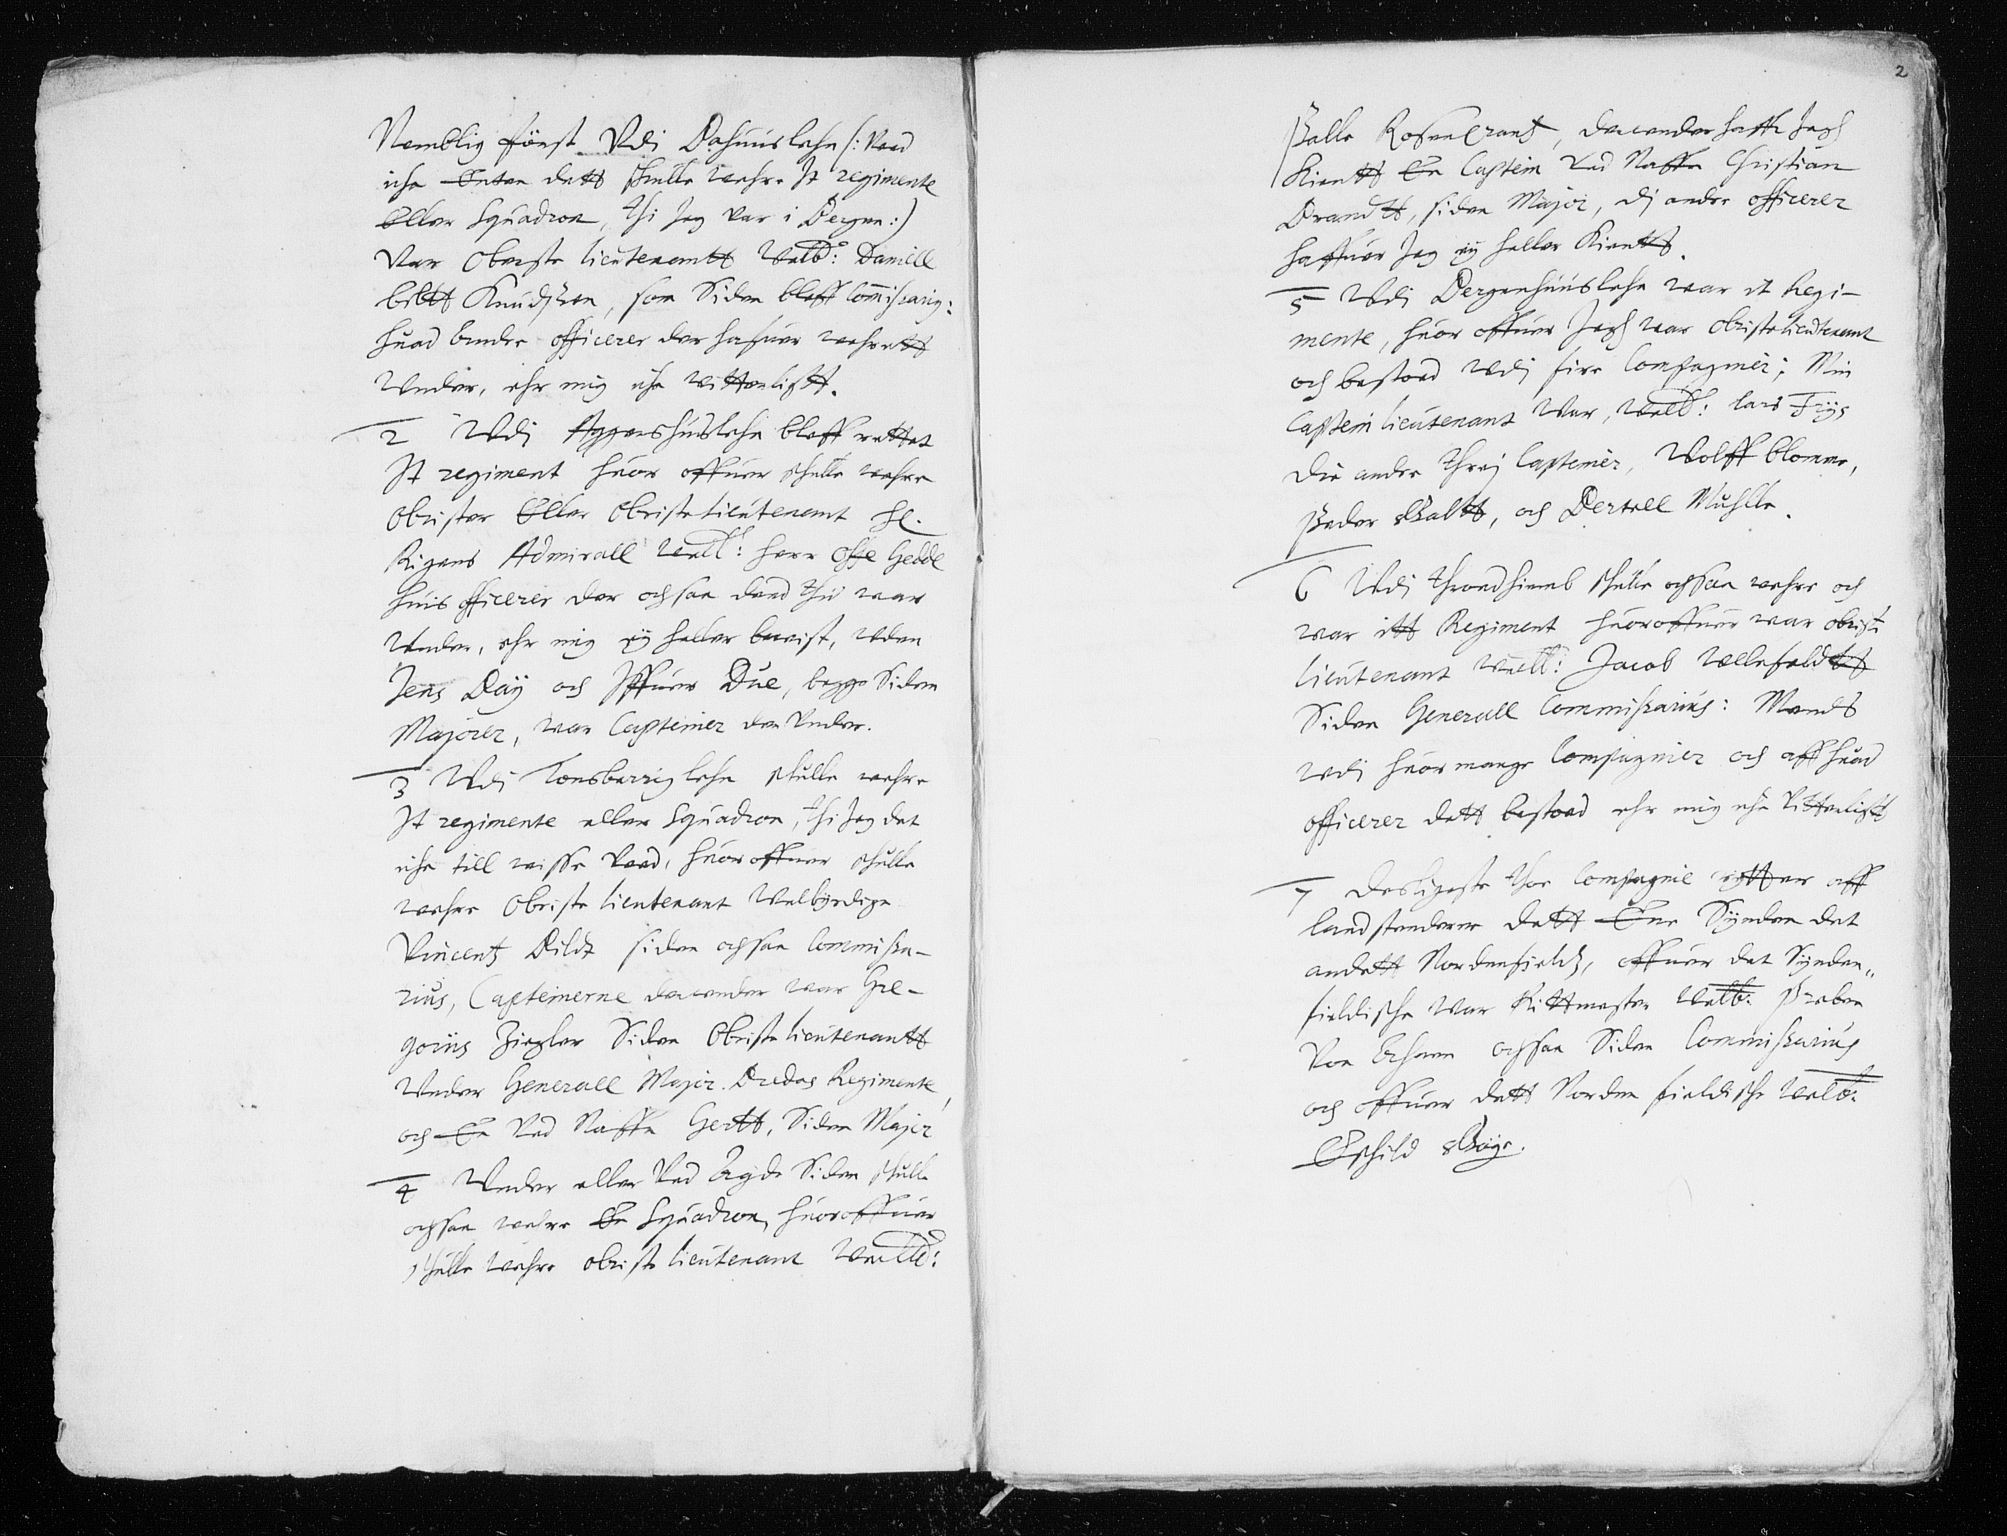 Nemblig først Vdi Bahuuslehn /: Veed
iche Enten dett schulle wehre It regimente
Eller Squadron, thi Jeg var i Bergen :/
Var Oberste lieutenantt Velb: Daniell
bildt Knudszen, som Siden bleff Commissarig:
huad andre officerer der hafuer wehrett
Under, ehr mig iche vitterligtt.
2 Vdi Aggershuslehn bleff rettet
It regiment huor offuer schulle wehre
Obrister Eller Obriste lieutenamt Hl.
Rigens Admirall Velb: herr Offe Gedde
huis officerer der ochsaa dend thid war
Under, ehr mig ey heller bevist, uden
Jens Baÿ och Iffuer Due, begge Siden
Majorer, war Capteiner der Under.
3 Vdi Tonsberrig lehn schulle wehre
It regimente eller Squadron, thi Jeg det
iche till visse veed, huor offuer schulle
wehre Obriste lieutenant Welbyrdige
Vincentz Bildt siden ochsaa Commissa-
rius, Capteinerne derunder war Gre-
gorius Ziegler Siden Obriste lieutenantt
Under Generall Major Bredas Regimente,
och En Ved Naffn Gertt, Siden Major
4 Under eller Ved Agde Siden schulle
ochsaa wehre En Squadron, huoroffuer
schulle wehre obriste lieutenant Velb:
2
Palle Rosencrantz, derunder haffr Jegh
Kientt En Captein ved Naffn Christian
Brandtt, siden Major, di andre officerer
haffuer Jeg ey heller Kientt.
5 Vdi Bergenhuuslehn war it Regi-
mente, huor offuer Jegh war Obriste lieutenant
och bestoed Vdi fire Compagnier; Min
Captein lieutenant War, Velb: lars Friis
Die andre threj Capteiner, Wolff blomer,
Peder Baltt, och Bertell Muhlle.
6 Vdi throndhiemb schulle ochsaa wehre och
war itt Regiment huoroffuer war obriste
lieutenant Velb: Jacob Ullefeldtt
Siden Generall Commissarius: Mends
vdi huor mange Compagnier och aff huad
officerer dett bestoed ehr mig iche vitterligtt
7 Desligeste thoe Compagnie rytter aff
landstenderne dett Ene Synden det
andett Nordenfieldz, offuer det Synden-
fieldische War Rittmester Velb: Preben
Von Ahnen ochsaa Siden Commissarius
och offuer dett Norden fieldische Velb:
Eschild Bøye.